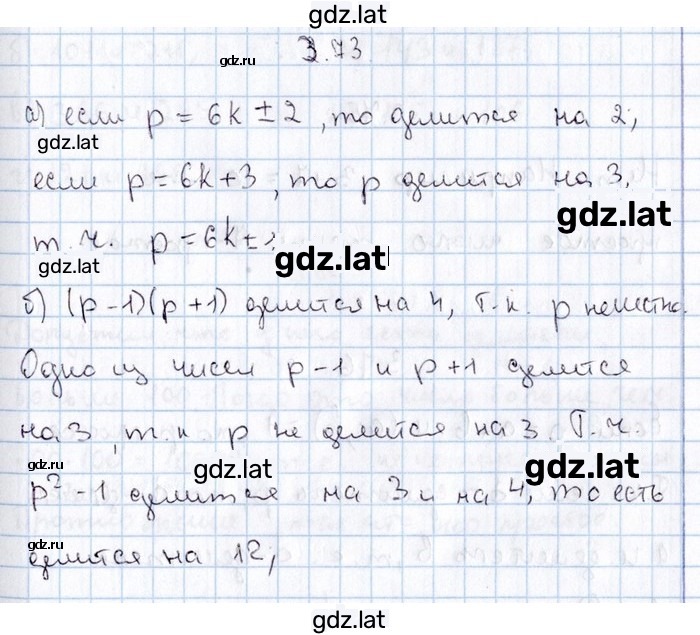 gdz.lat
3.73.
gdz.ru
а) если p = 6k ± 2, то делится на 2;
gdz.lat
если p = 6k + 3, то p делится на 3.
gdz.lat
т.ч. p = 6k ±
gdz.lat
gdz.lat
б) (p - 1)(p + 1) делится на 4, т.к. p нечетно.
Одно из чисел p - 1 и p + 1 делится
на 3, т.к p не делится на 3. Т.ч.
gdz.lat
gdz.lat
p² - 1 делится на 3 и на 4, то есть
gdz.ru
gdz.ru
делится на 12;
gdz.lat